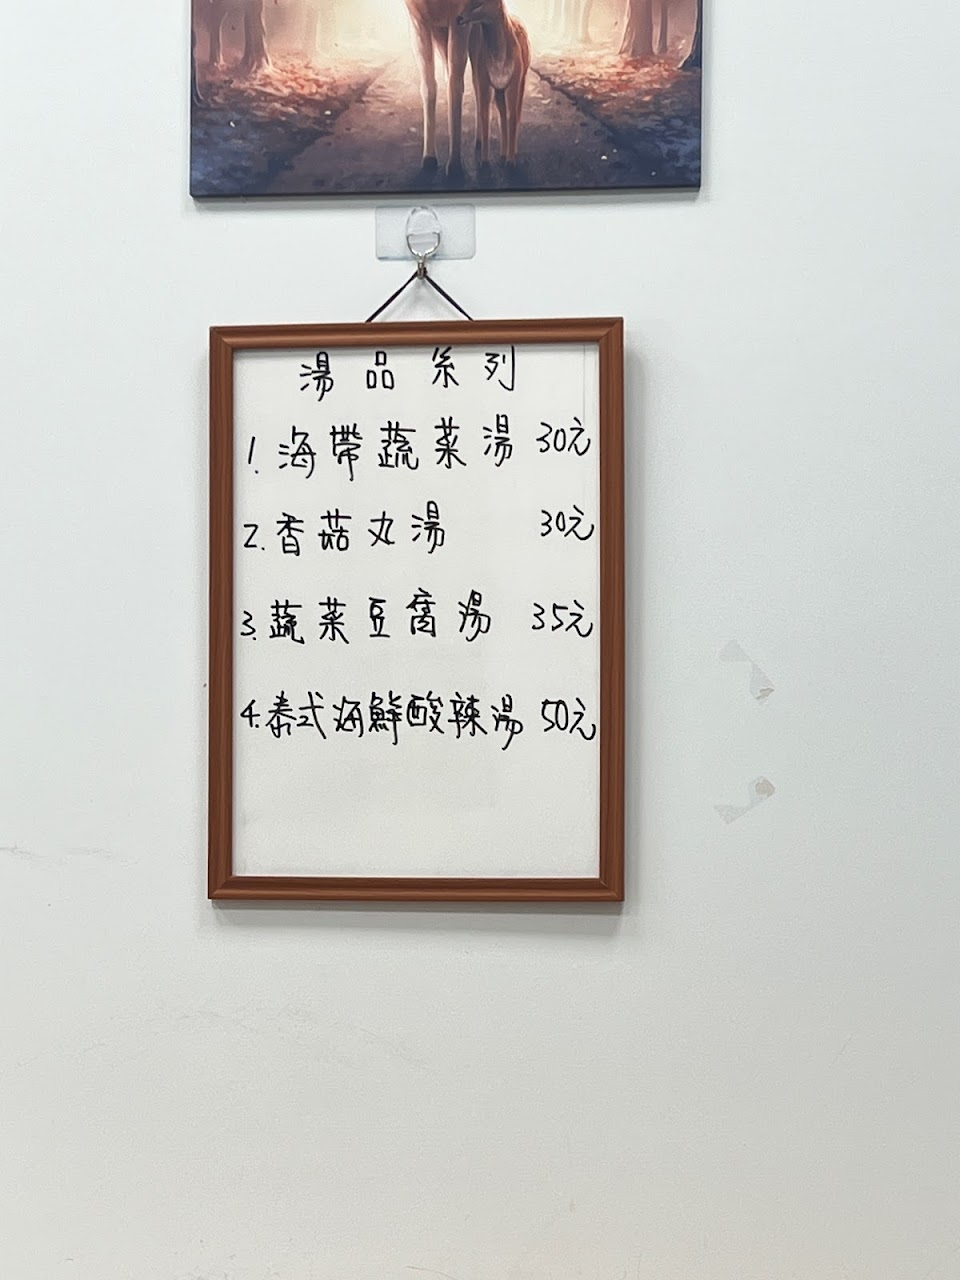 湯品系列
1. 海帶蔬菜湯 30元
2. 香菇丸湯 30元
3. 蔬菜豆腐湯 35元
4. 泰式海鮮酸辣湯 50元